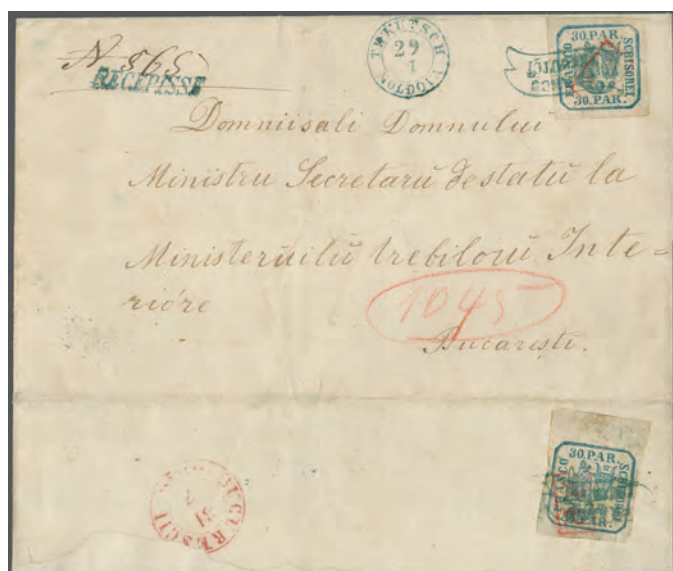 N 865
RECEPISSE
TEKUTSCH
29
MOLDOVA
30.PAR.
FRANCO SCRISOREI
30.PAR.
Domniisali Domnului
Ministru Secretarŭ de statŭ la
Ministeruilŭ trebilorŭ Inte=
rióre
1045
Bucaresti.
BUCURESCII
31
7
30.PAR.
FRANCO
30.PAR.